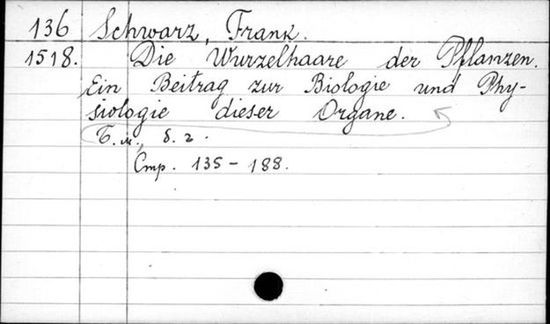 136 Schwarz, Frank.
1518. Die Wurzelhaare der Pflanzen.
Ein Beitrag zur Biologie und Phy-
siologie dieser Organe.
Т. и., д. 2.
Стр. 135 – 188.